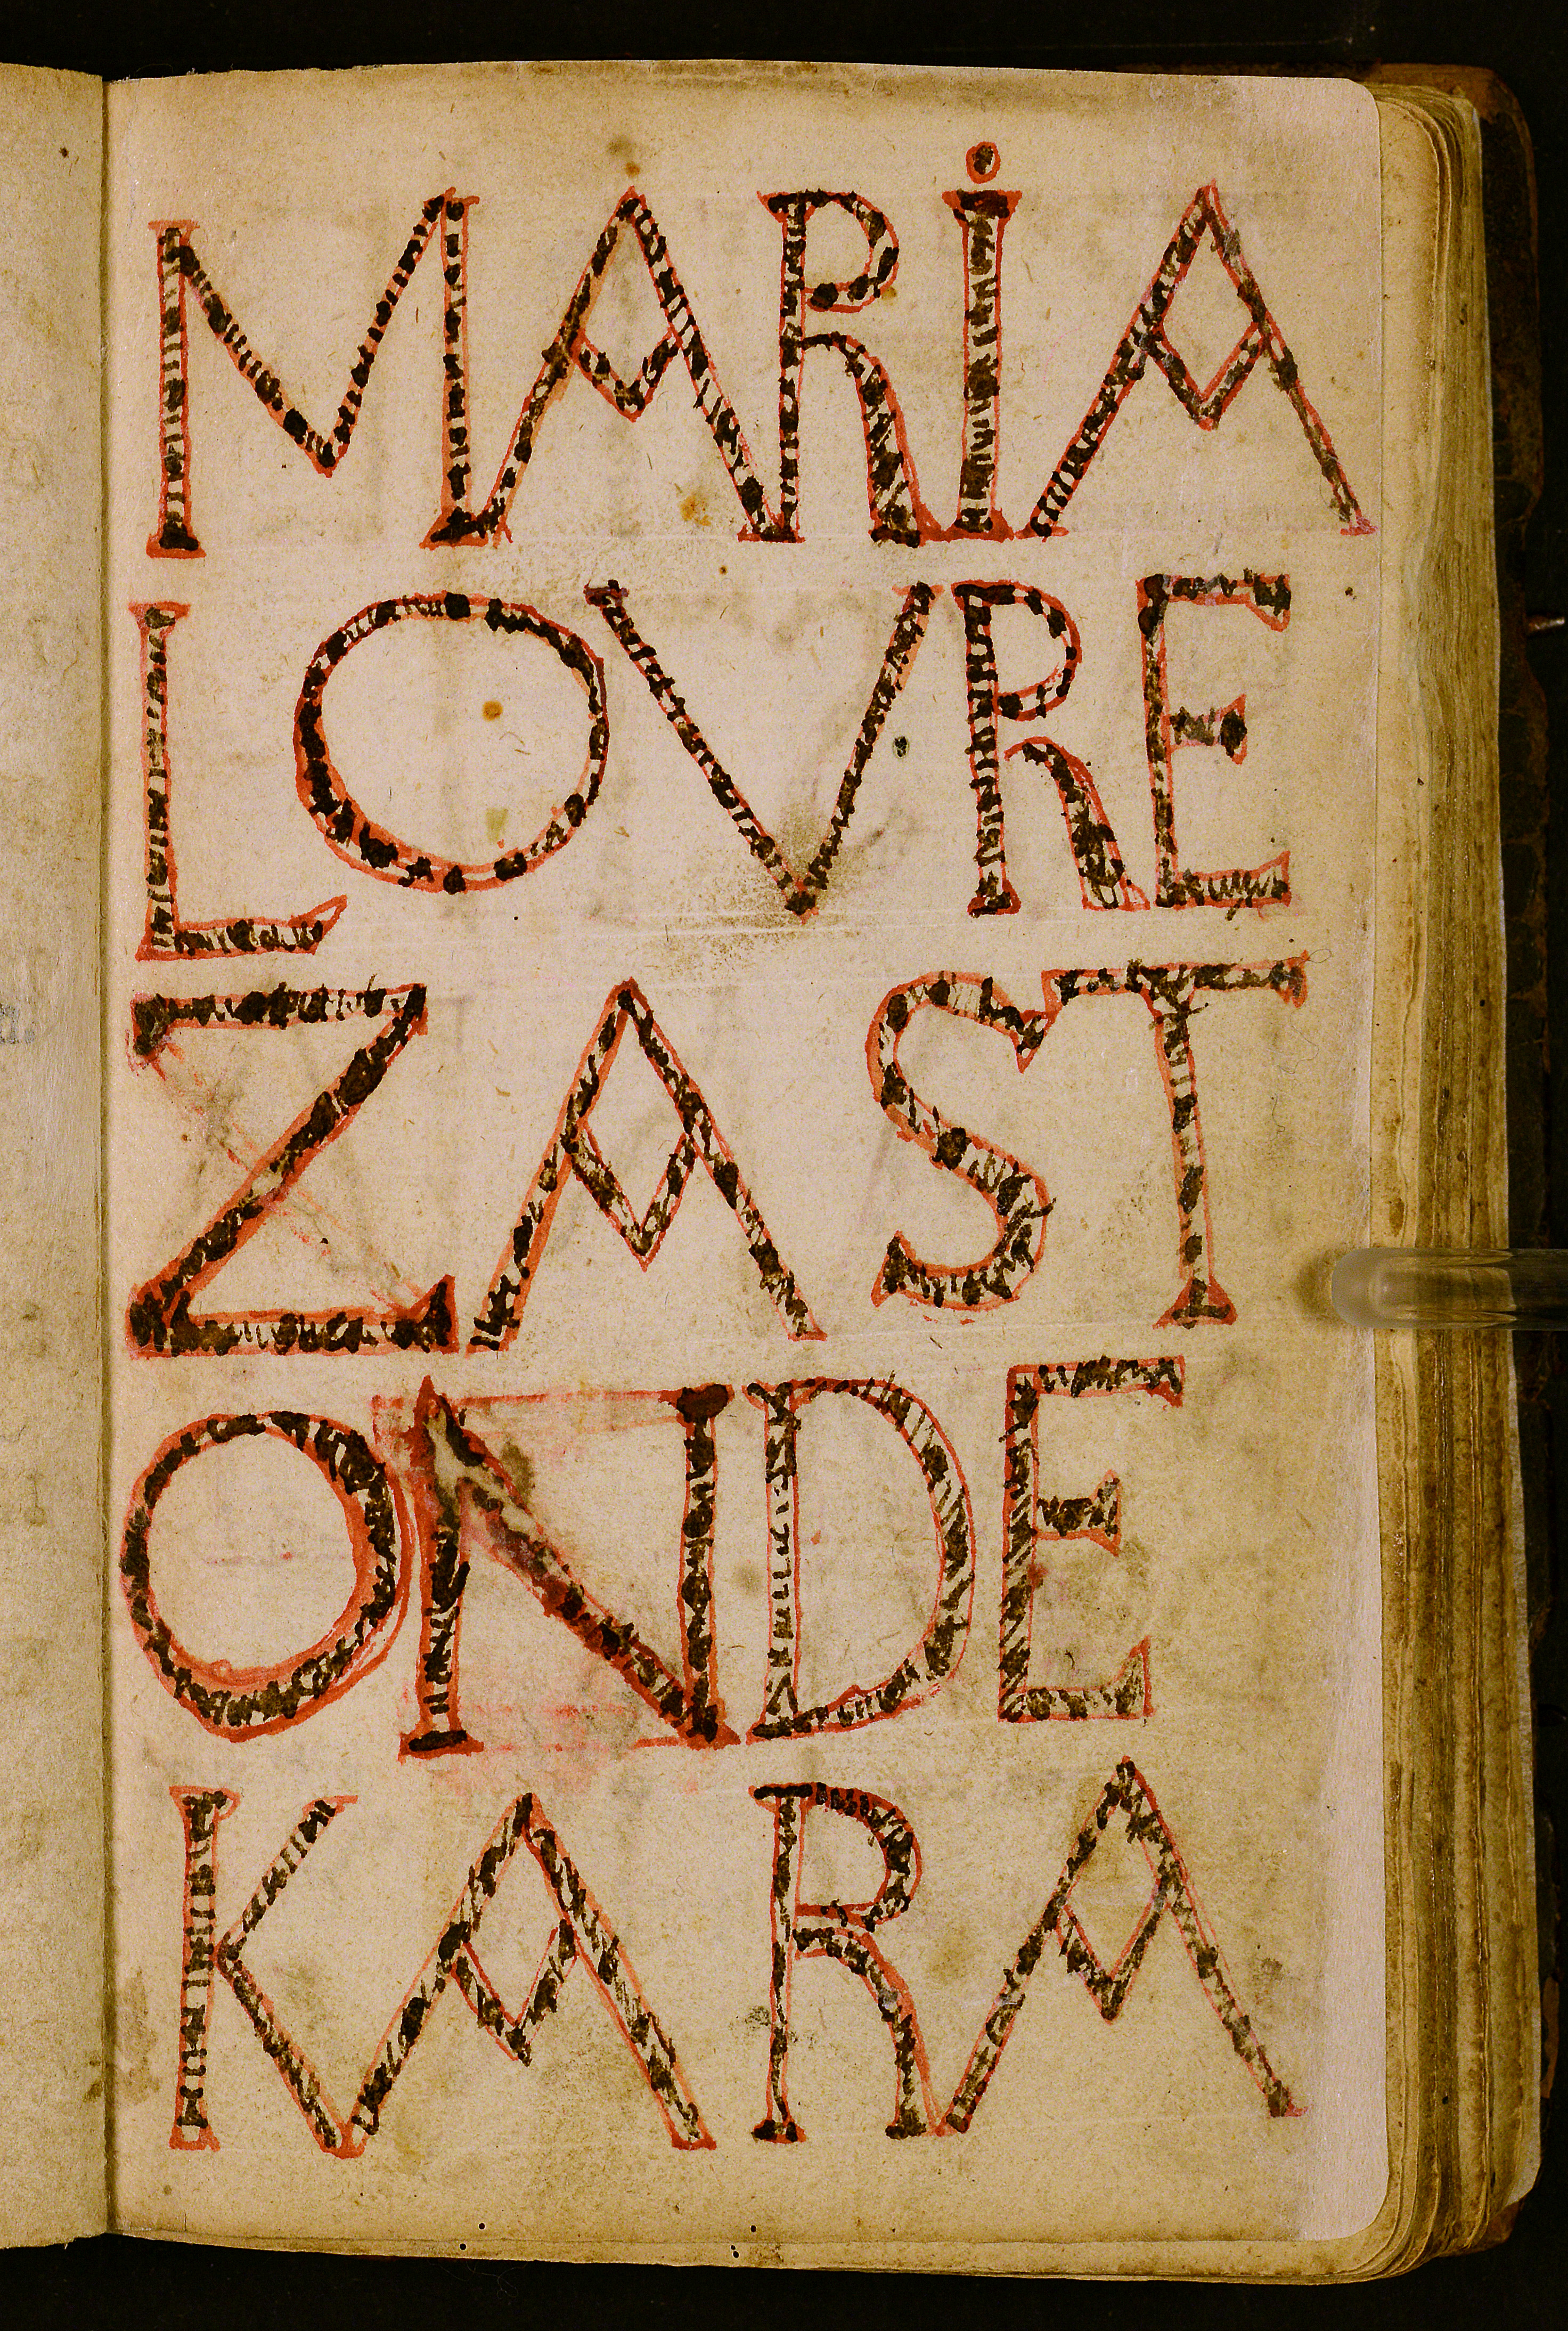 MARİA
LOVRE
ZAST
ONDE
KARA